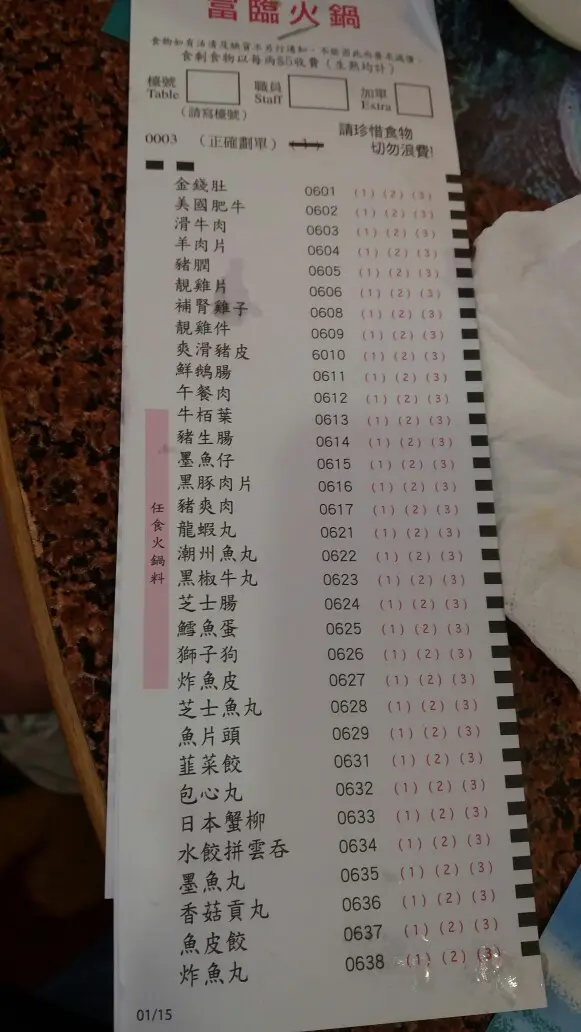 富臨火鍋
食物如有沽清及缺貨不另行通知，不能因此而要求減價。
食剩食物以每両$5收費（生熟均計）
檯號 職員 加單
Table Staff Extra
（請寫檯號）
請珍惜食物
0003 （正確劃單） (1)
切勿浪費!
金錢肚 0601 (1) (2) (3)
美國肥牛 0602 (1) (2) (3)
滑牛肉 0603 (1) (2) (3)
羊肉片 0604 (1) (2) (3)
豬膶 0605 (1) (2) (3)
靚雞片 0606 (1) (2) (3)
補腎雞子 0608 (1) (2) (3)
靚雞件 0609 (1) (2) (3)
爽滑豬皮 6010 (1) (2) (3)
鮮鵝腸 0611 (1) (2) (3)
午餐肉 0612 (1) (2) (3)
牛栢葉 0613 (1) (2) (3)
豬生腸 0614 (1) (2) (3)
墨魚仔 0615 (1) (2) (3)
黑豚肉片 0616 (1) (2) (3)
豬爽肉 0617 (1) (2) (3)
龍蝦丸 0621 (1) (2) (3)
潮州魚丸 0622 (1) (2) (3)
黑椒牛丸 0623 (1) (2) (3)
芝士腸 0624 (1) (2) (3)
鱈魚蛋 0625 (1) (2) (3)
獅子狗 0626 (1) (2) (3)
炸魚皮 0627 (1) (2) (3)
芝士魚丸 0628 (1) (2) (3)
魚片頭 0629 (1) (2) (3)
韮菜餃 0631 (1) (2) (3)
包心丸 0632 (1) (2) (3)
日本蟹柳 0633 (1) (2) (3)
水餃拼雲吞 0634 (1) (2) (3)
墨魚丸 0635 (1) (2) (3)
香菇貢丸 0636 (1) (2) (3)
魚皮餃 0637 (1) (2) (3)
炸魚丸 0638 (1) (2) (3)
任食火鍋料
01/15